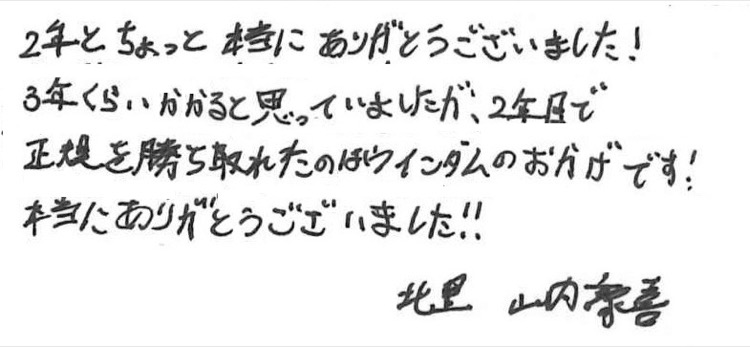 2年とちょっと 本当に ありがとうございました!
3年くらいかかると思っていましたが、2年目で
正規を勝ち取れたのはウインダムのおかげです!
本当にありがとうございました!!
北里 山内